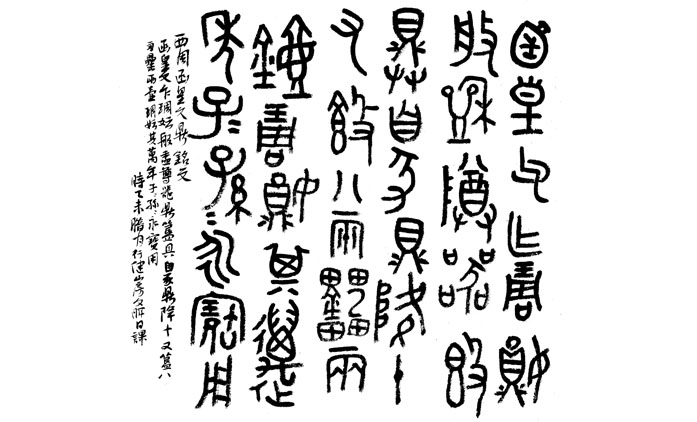 函皇父乍琱妘
般盉尊器簋
具自豕鼎降十
又簋八兩罍兩
壺琱妘其萬
年子=孫=永寶用
西周函皇父鼎銘文
函皇父乍琱妘般盉尊器鼎簋具自豕鼎降十又簋八
兩罍兩壺琱妘其萬年子=孫=永寶用
時乙未臘月於山房日課